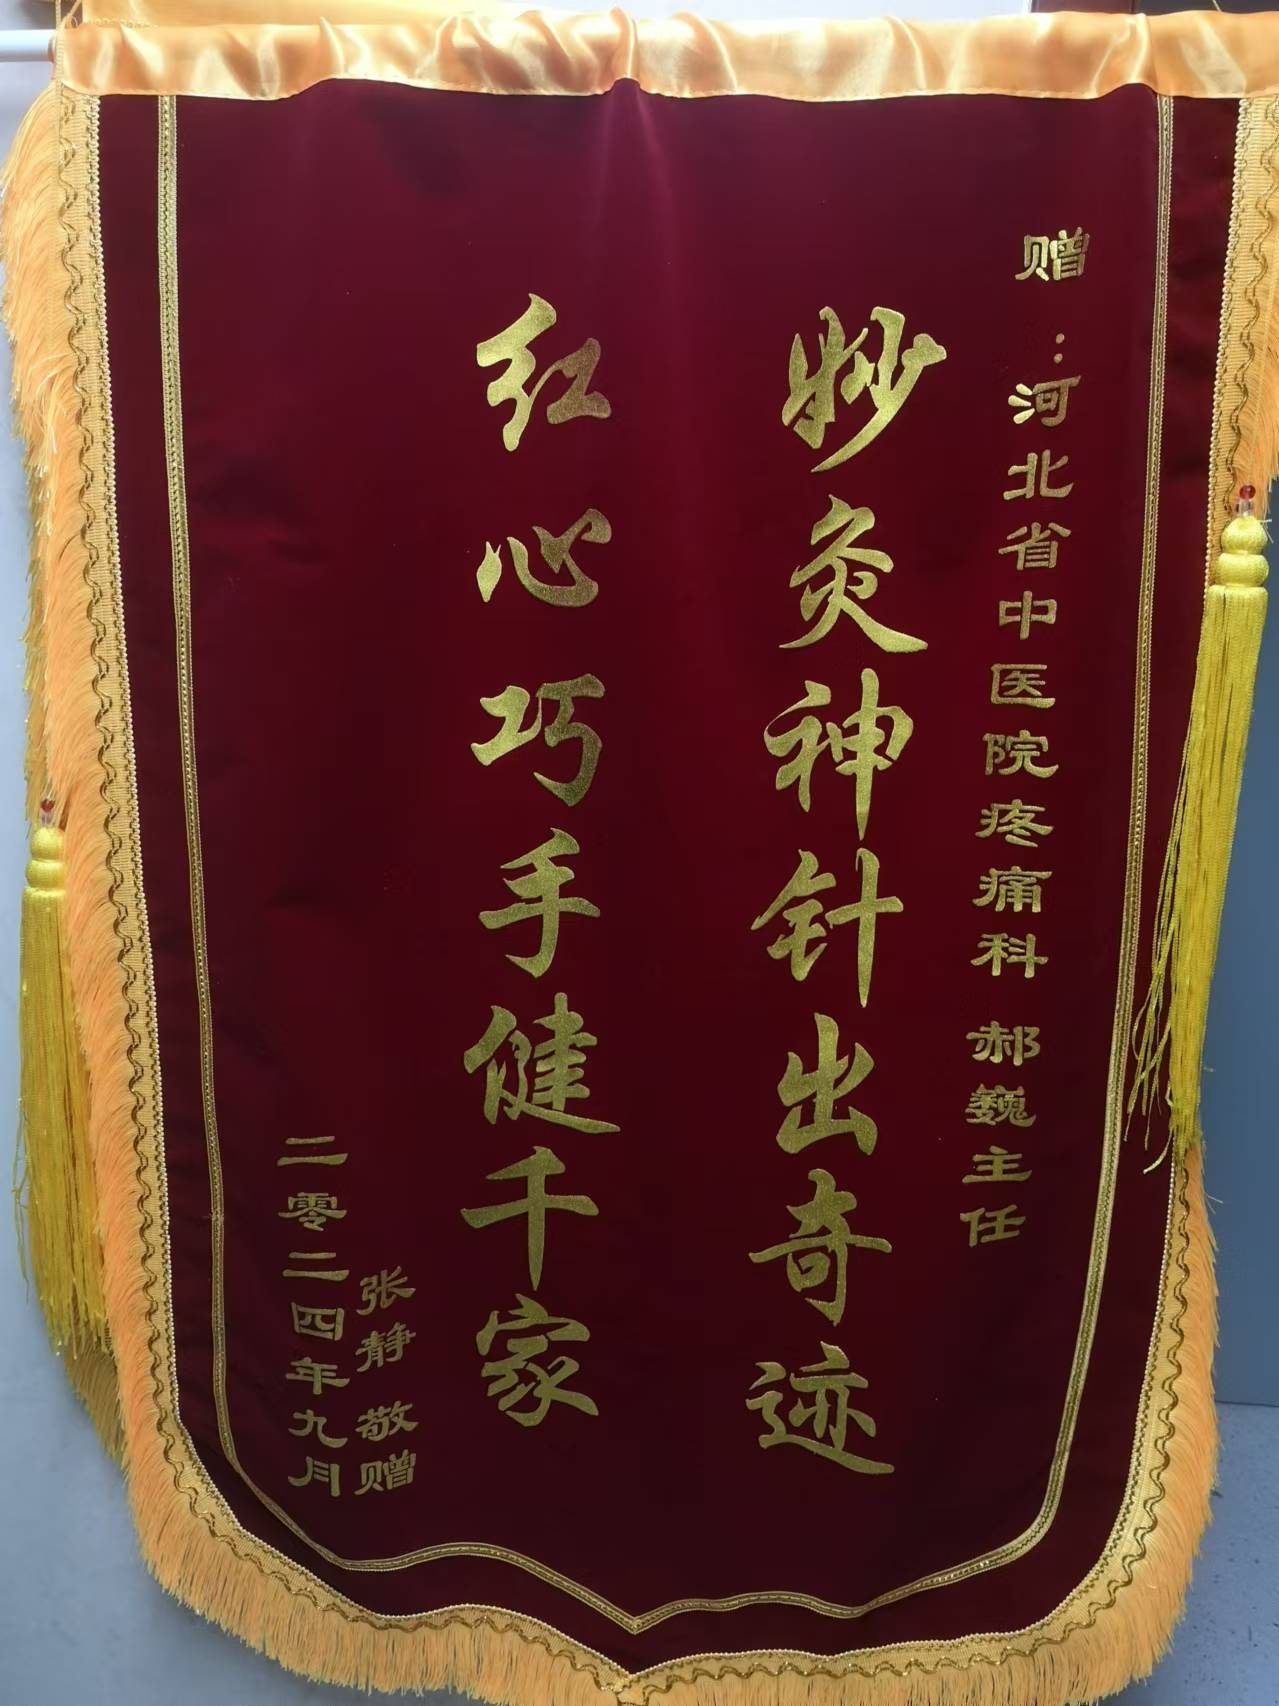 赠：河北省中医院疼痛科 郝巍主任
妙灸神针出奇迹
红心巧手健千家
张静 敬赠
二零二四年九月